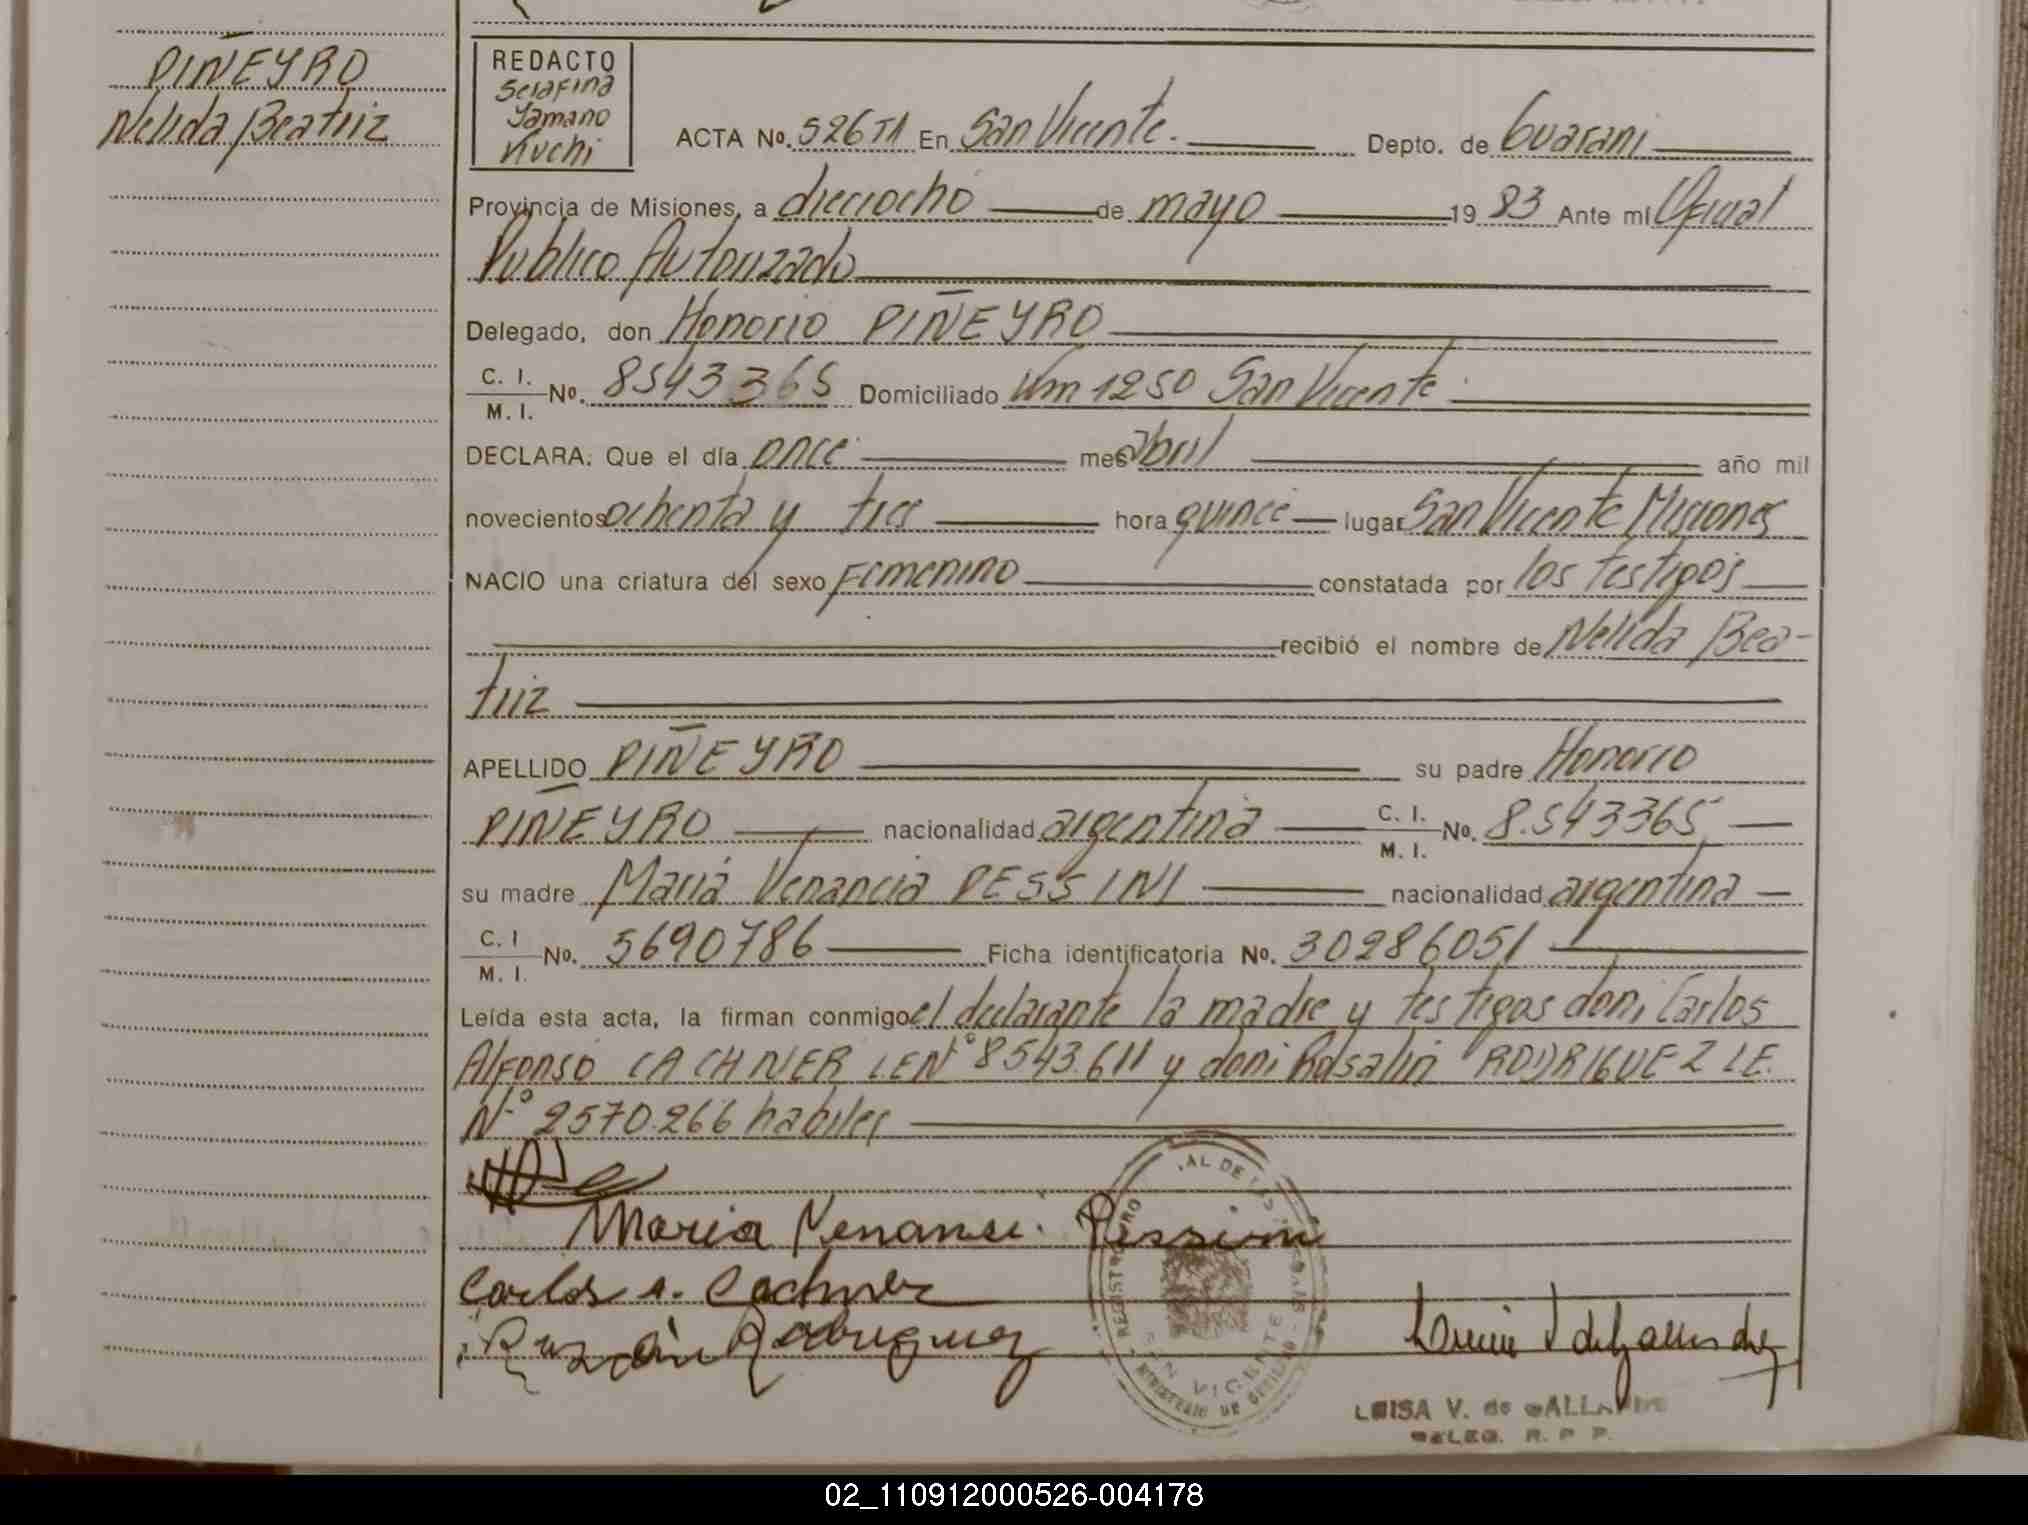 PIÑEYRO
Nelida Beatriz
REDACTO
Serafina
Yamano
Kuchi
ACTA No. 526 T1 En San Vicente. Depto. de Guarani
Provincia de Misiones, a dieciocho de mayo 19 83 Ante mi Oficial
Publico Autorizado
Delegado, don Honorio PIÑEYRO
C. I. M. I. No. 8543365 Domiciliado Km 1250 San Vicente
DECLARA: Que el día once mes abril año mil
novecientos ochenta y tres hora quince lugar San Vicente Misiones
NACIO una criatura del sexo Femenino constatada por los testigos
recibió el nombre de Nelida Bea-
triz
APELLIDO PIÑEYRO su padre Honorio
PIÑEYRO nacionalidad argentina C. I. M. I. No. 8.543365
su madre Maria Venancia PESSINI nacionalidad argentina
C. I M. I. No. 5690786 Ficha identificatoria No. 30286051
Leída esta acta, la firman conmigo el declarante la madre y testigos don: Carlos
Alfonso CACHNER LE N° 8543.611 y don: Rosalin RODRIGUEZ LE.
N.° 2570.266 habiles
Maria Venanci. Pessini
Carlos A. Cachner
Rodriguez
SAN VICENTE
LUISA V. de GALLARDO
DELEG. R. P. P.
02_110912000526-004178